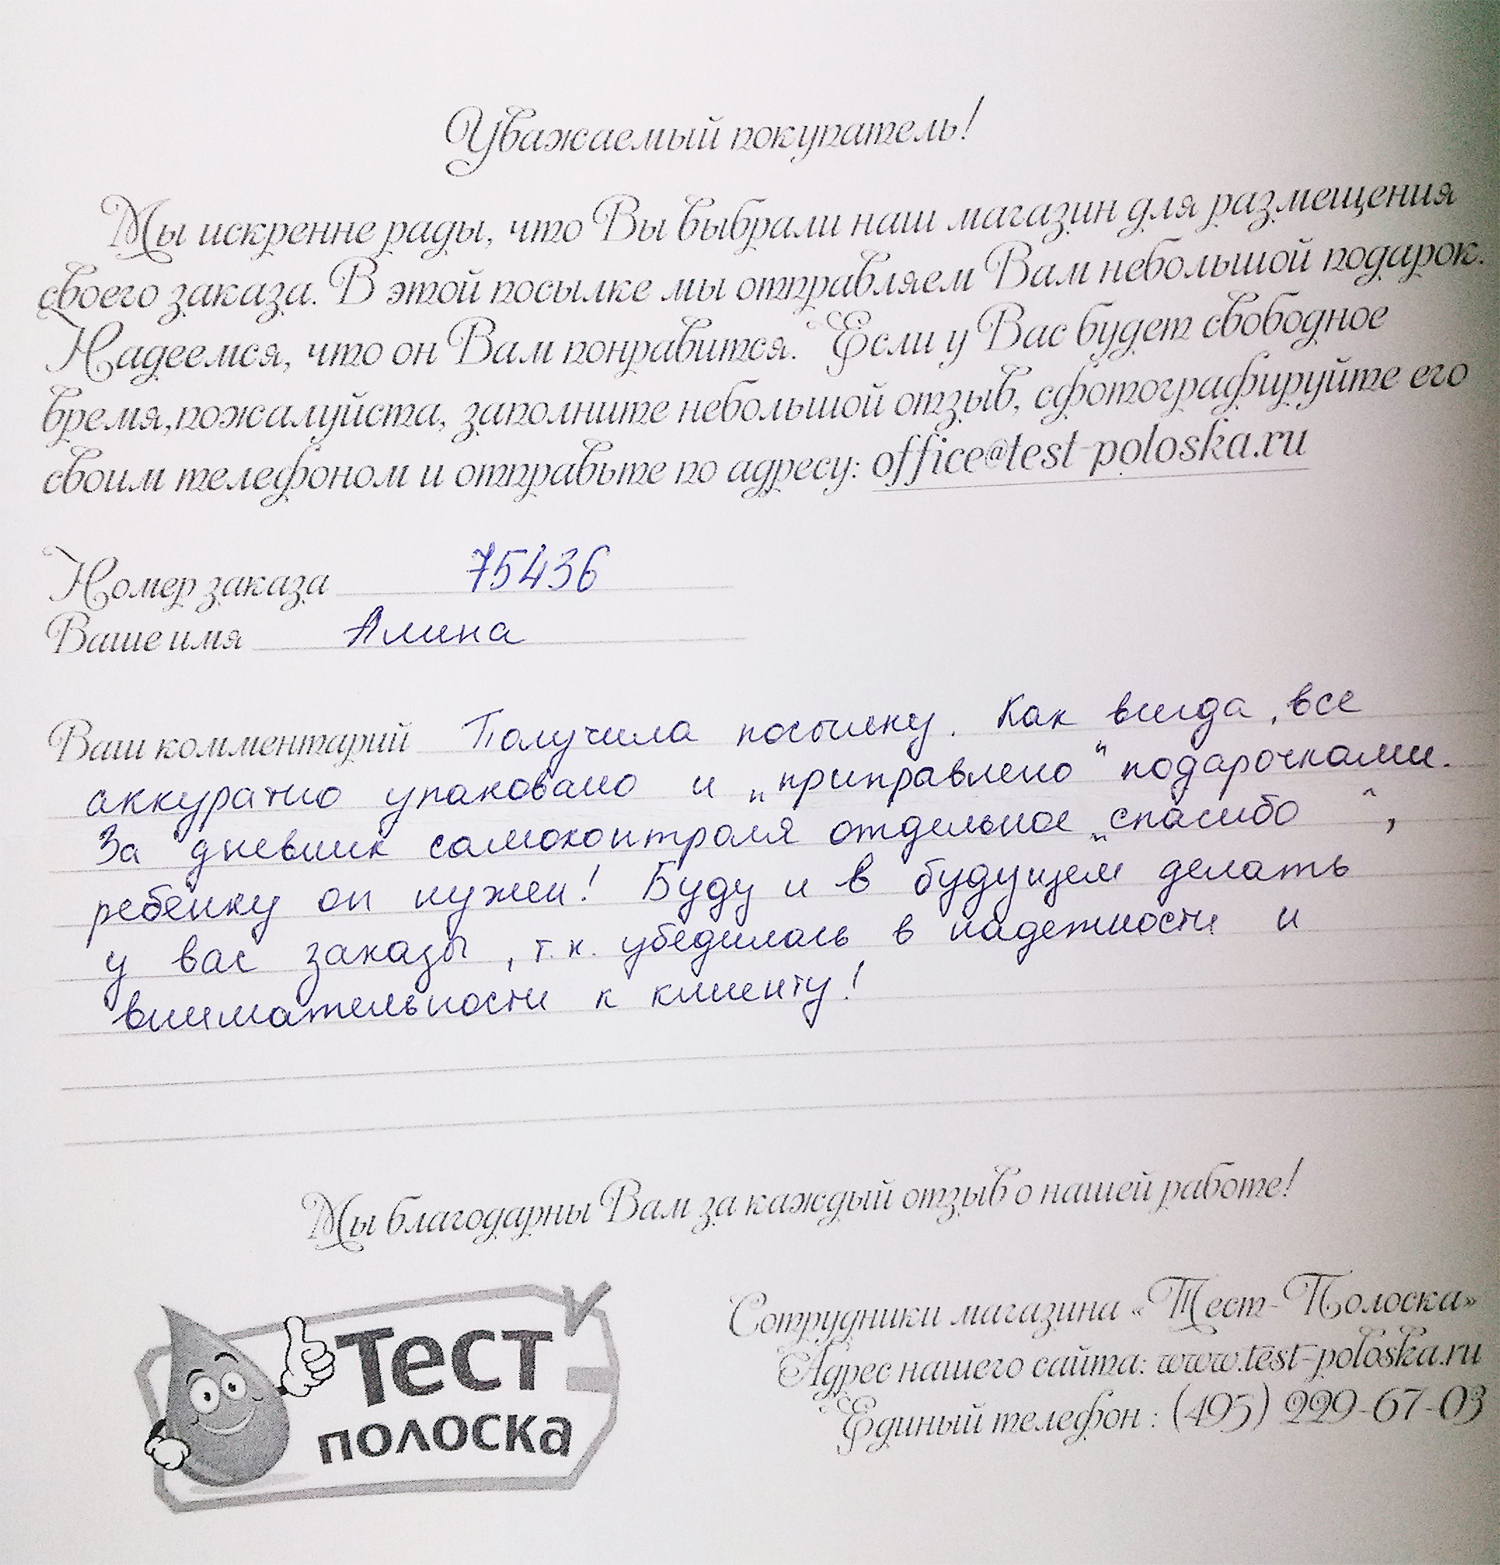 Уважаемый покупатель!
Мы искренне рады, что Вы выбрали наш магазин для размещения
своего заказа. В этой посылке мы отправляем Вам небольшой подарок.
Надеемся, что он Вам понравится. Если у Вас будет свободное
время,пожалуйста, заполните небольшой отзыв, сфотографируйте его
своим телефоном и отправьте по адресу: office@test-poloska.ru
Номер заказа 75436
Ваше имя Алина
Ваш комментарий Получила посылку. Как всегда, все
аккуратно упаковано и „приправлено" подарочками.
За дневник самоконтроля отдельное „спасибо",
ребенку он нужен! Буду и в будущем делать
у вас заказы, т.к. убедилась в надежности и
внимательности к клиенту!
Мы благодарны Вам за каждый отзыв о нашей работе!
Тест
полоска
Сотрудники магазина «Тест-Полоска»
Адрес нашего сайта: www.test-poloska.ru
Единый телефон : (495) 229-67-03